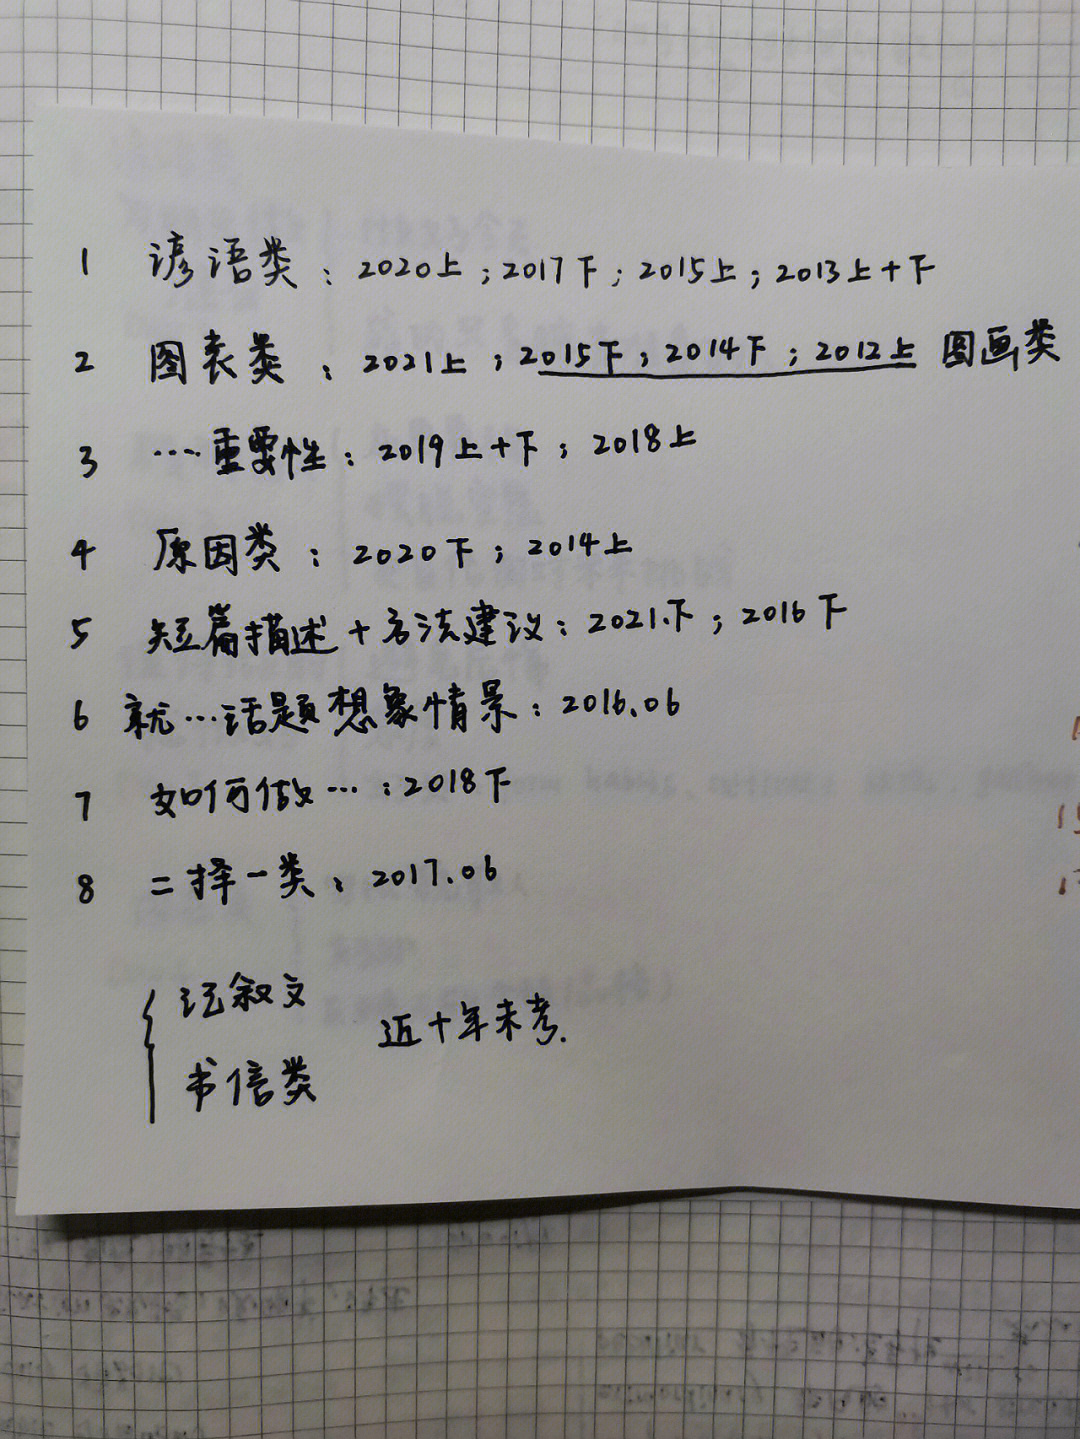 1 谚语类：2020上；2017下；2015上；2013上+下
2 图表类：2021上；2015下；2014下；2012上 图画类
3 ····重要性：2019上+下；2018上
4 原因类：2020下；2014上
5 短篇描述+方法建议：2021.下；2016下
6 就···话题想象情景：2016.06
7 如何做···：2018下
8 二择一类：2017.06
记叙文
近十年未考.
书信类